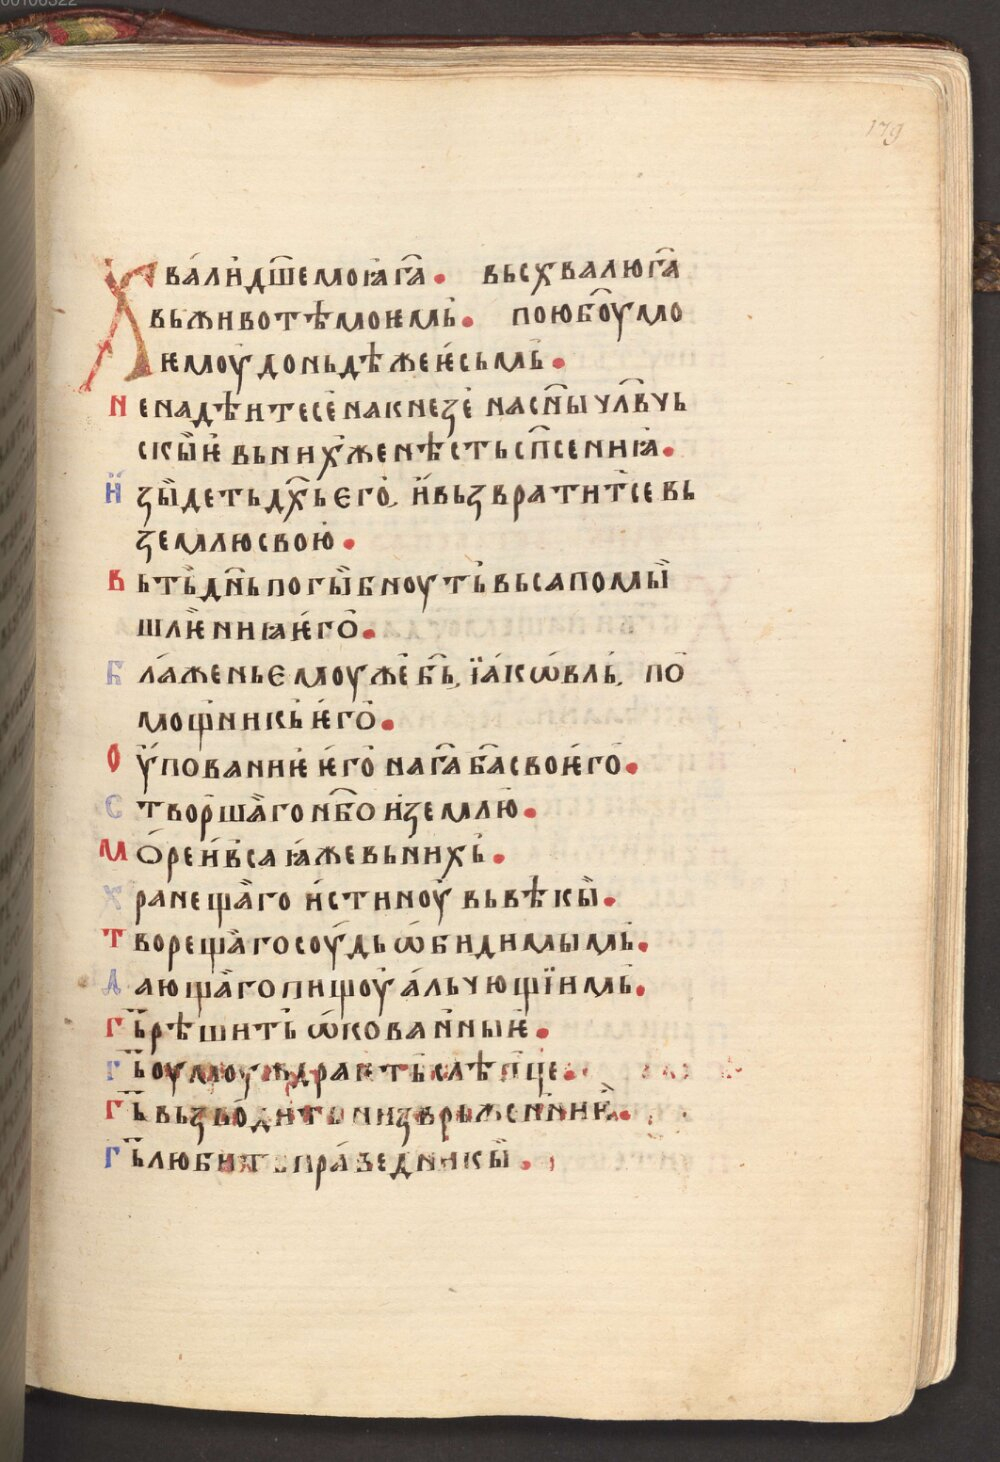 179
Хвалѝ дш҃е моꙗ га҃ • въсхвалю га҃
вь животѣ моѥмь • пою бо҃у мо
ѥмоу доньдѣже ѥсьмь •
Не надѣите се на кнезе на сн҃ы чл҃вчь
скыѥ вь них же нѣсть сп҃сениꙗ •
Изыдеть дх҃ь єго, и вьзвратит се вь
землю свою •
Вь ть дн҃ь погыбноуть вьса помы
шлѥниꙗ ѥго •
Блажень ѥмоу же б҃ь їаковль, по
мощникь ѥго •
Оупованиѥ ѥго на га҃ ба҃ своѥго •
Створшаго нб҃о и землю •
Море и вса ꙗже вь нихь •
Хранещаго истиноу вь вѣкы •
Творещаго соудь ѡбидимымь •
Дающаго пищоу альчющїимь •
Г҃ь рѣшить ѡкованныѥ •
Г҃ь оумоудраѥть слѣпце •
Г҃ь вьзводить низврьженныѥ •
Г҃ь любить праведникы •